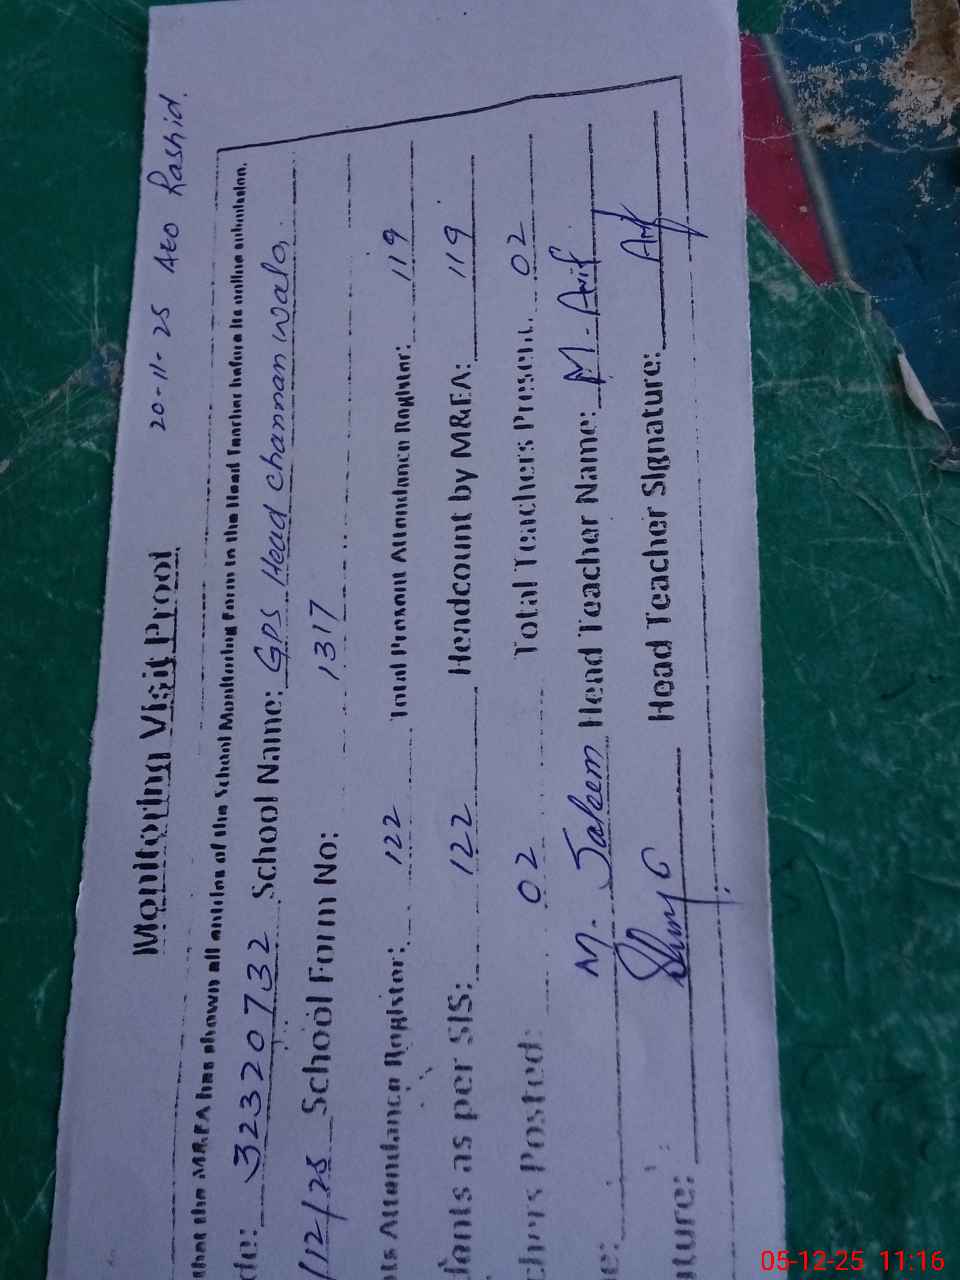 20-11-25 AEO Rashid.
Monitoring Visit Proof
that the M&EA has shown all entries of the School Monitoring Form to the Head Teacher before its online submission.
de: 32320732 School Name: GPS Head channanwala
/12/25 School Form No: 1317
ts Attendance Register: 122 Total Present Attendance Register: 119
dents as per SIS: 122 Headcount by M&EA: 119
chers Posted: 02 Total Teachers Present: 02
e: M. Saleem Head Teacher Name: M. Arif
ture: Head Teacher Signature: Arif
05-12-25 11:16